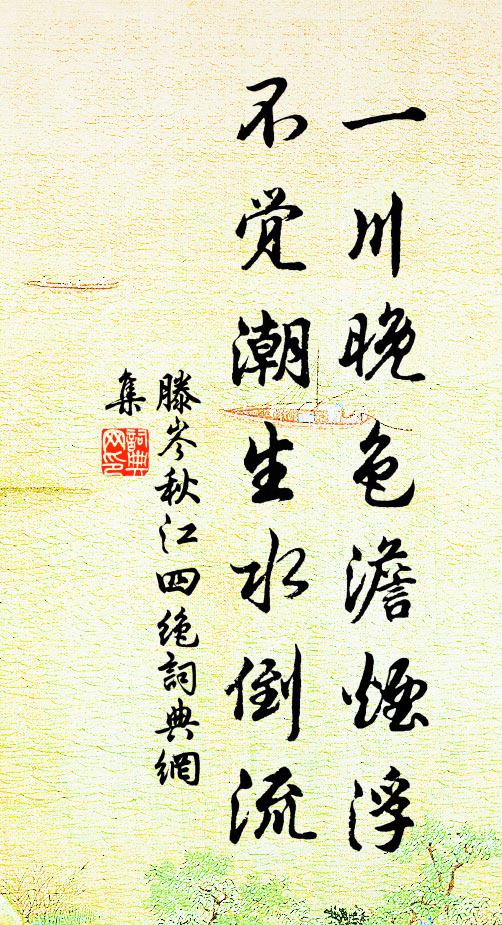 一川晚色澹煙浮
不觉潮生水倒流
滕岑秋江四绝詞典網
集
詞典
网印